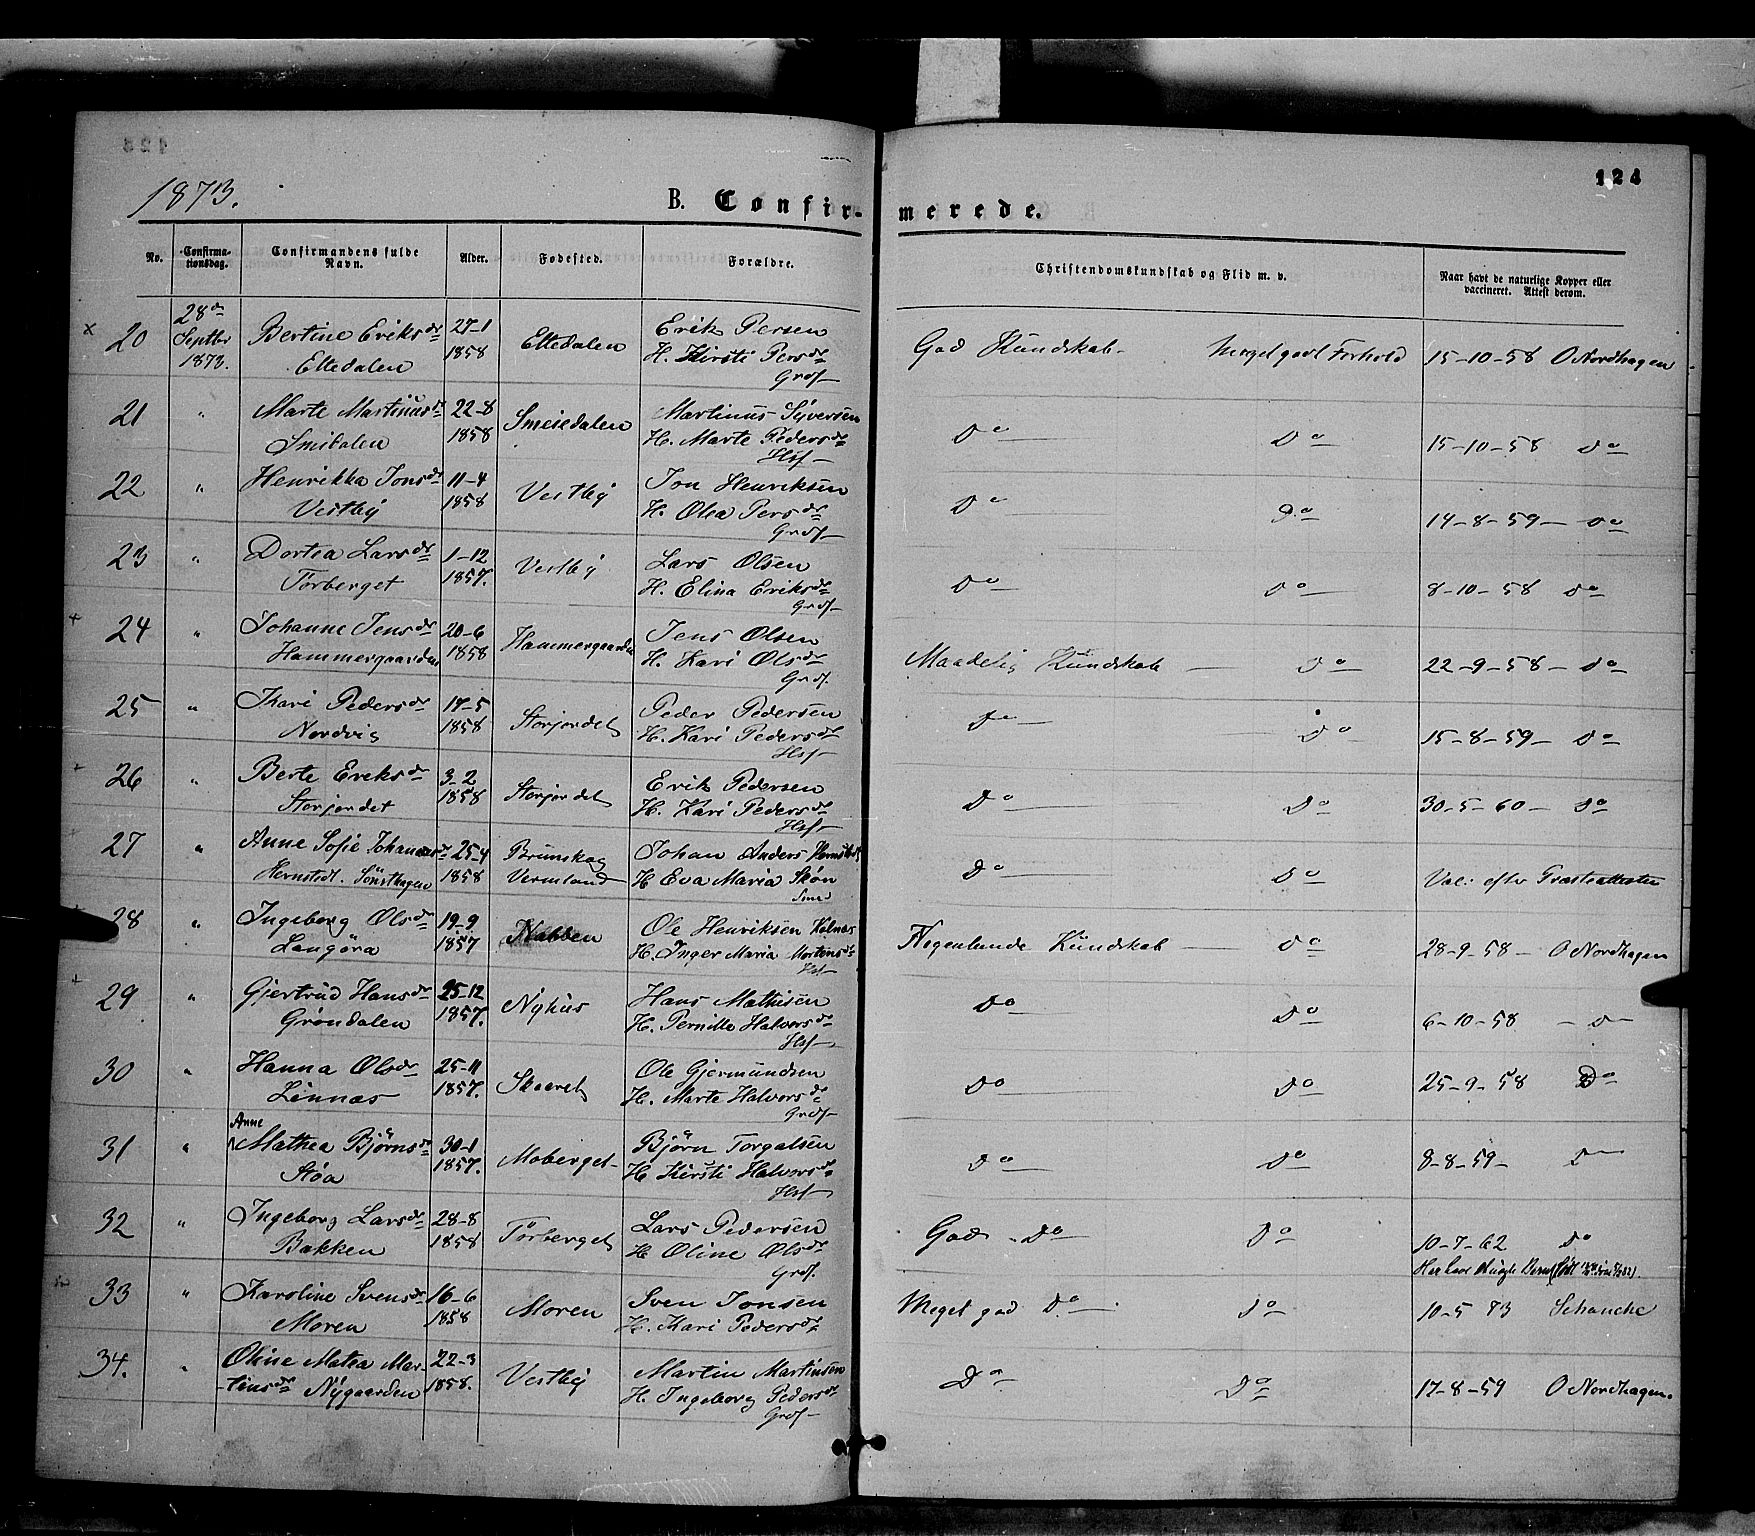 124
1873.
B. Confir-merede.
No.
Confirma-
tionsdag.
Confirmandens fulde
Navn.
Alder.
Fødested.
Forældre.
Christendomskundskab og Flid m. v.
Naar havt de naturlige Kopper eller
vaccineret. Attest derom.
28de
20 Septbr Bertine Eriksdr 27-1 Ettedalen Erik Persen God Kundskab - Meget godt Forhold 15-10-58 O Nordhagen
1873. Ettedalen 1858 H. Kirsti Persdr
Grdf
21 " Marte Martinusdr 22-8 Smeiedalen Martinus Syversen Do Do 15-10-58 Do
Smidalen 1858 H. Marte Pedersdr
Hsf
22 " Henrikka Jonsdr 11-4 Vestby Jon Henriksen Do Do 14-8-59 - Do
Vestby 1858 H. Olea Persdr
Grdf
23 " Dortea Larsdr 1-12 Vestby Lars Olsen Do Do 8-10-58 Do
Törberget 1857. H. Elina Eriksdr
Grdf
24 " Johanne Jensdr 20-6 Hammergaarden Jens Olsen Maadelig Kundskab Do 22-9-58 - Do
Hammergaarden 1858 H. Kari Olsdr
Grdf.
25 " Kari Pedersdr 14-5 Storjordet Peder Pedersen Do Do 15-8-59 - Do
Nordvig 1858 H. Kari Pedersdr
Hsf
26 " Berte Ereksdr 3-2 Storjordet Erik Pedersen Do Do 30-5-60 - Do
Storjordet 1858 H. Kari Pedersdr
Hsf
27 " Anne Sofie Johannesdr 25-4 Brunskog Johan Anders Hernstedt Do Do Vac: efter Præsteattesten
Hernstedt. Sönsthagen 1858 Vermland H Eva Maria Skøn
28 " Ingeborg Olsdr 19-9 Nabben Ole Henriksen Kolnæs Nogenlunde Kundskab Do 28-9-58 - O Nordhagen
Langöra 1857 H. Inger Maria Mortensdr
Hsf
29 " Gjertrud Hansdr 25-12 Nyhus Hans Mathisen Do Do 6-10-58 - D -
Gröndalen 1857. H. Pernille Halvorsdr
Hsf
30 " Hanna Olsdr 25-11 Skaaret Ole Gjermundsen Do Do 25-9-58 Do
Linnæs 1857. H. Marte Halvorsdr
Grdf
Anne
31 " Mathea Björnsdr 30-1 Moberget Björn Torgalsen Do Do 8-8-59 - D
Støa 1857. H Kirsti Halvorsdr
Hsf
32 " Ingeborg Larsdr 28-8 Törberget Lars Pedersen God Do Do 10-7-62 Do
Bakken 1858 H Oline Olsdr
Grdf.
33 " Karoline Svensdr 16-6 Moren Sven Jonsen Meget god Do Do 10-5 73 Schanche
Moren 1858 H. Kari Pedersdr
34. " Oline Matea Mar- 22-3 Vestby Martin Martinsen Do Do 17-8-59 O Nordhagen.
-tinsdr Nygaarden 1858. H. Ingeborg Pedersdr
Grdf